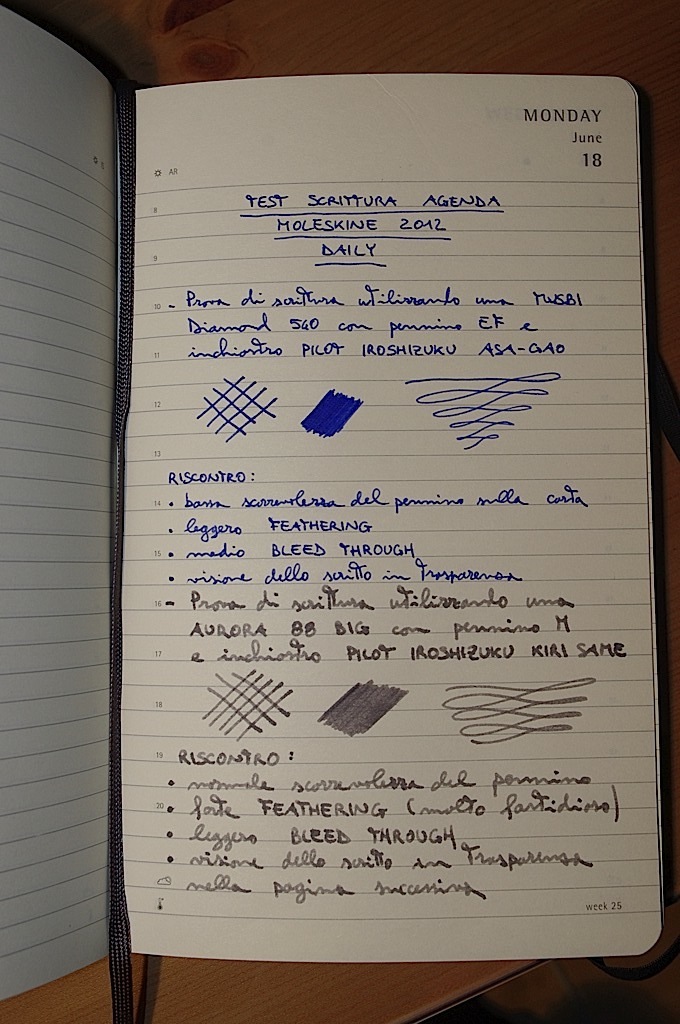 MONDAY
June
18
AR
8
TEST SCRITTURA AGENDA
MOLESKINE 2012
9
DAILY
10
- Prova di scrittura utilizzando una TWSBI
Diamond 540 con pennino EF e
11
inchiostro PILOT IROSHIZUKU ASA-GAO
12
13
RISCONTRO:
14
• bassa scorrevolezza del pennino sulla carta
• leggero FEATHERING
15
• medio BLEED THROUGH
• visione dello scritto in trasparenza
16
- Prova di scrittura utilizzando una
AURORA 88 BIG con pennino M
17
e inchiostro PILOT IROSHIZUKU KIRI SAME
18
19
RISCONTRO:
• normale scorrevolezza del pennino
20
• forte FEATHERING (molto fastidioso)
• leggero BLEED THROUGH
• visione dello scritto in trasparenza
nella pagina successiva
week 25